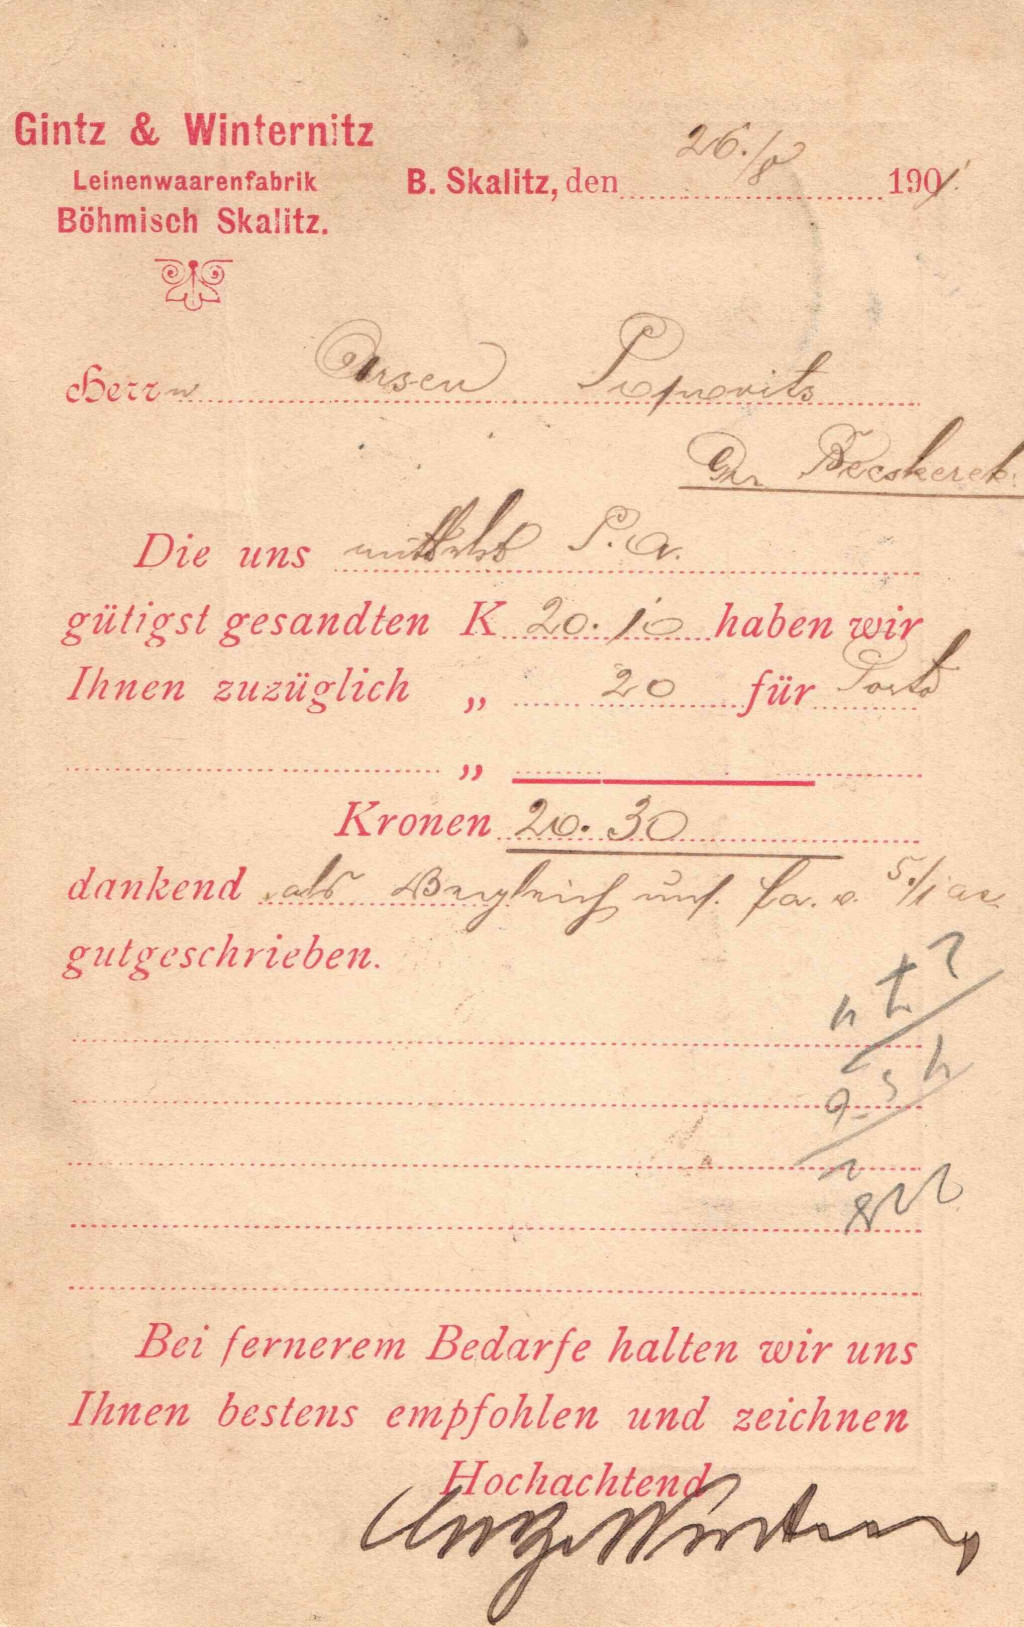 Gintz & Winternitz
Leinenwaarenfabrik
Böhmisch Skalitz.
B. Skalitz, den 26./8 1901.
Herrn Arsen Popovits
Gr. Becskerek.
Die uns mittelst P. A.
gütigst gesandten K 20.10 haben wir
Ihnen zuzüglich „ 20 für Porto
„
Kronen 20.30
dankend als Vergleich uns. Fa. v. 5./
gutgeschrieben.
Bei fernerem Bedarfe halten wir uns
Ihnen bestens empfohlen und zeichnen
Hochachtend
Gintz & Winternitz